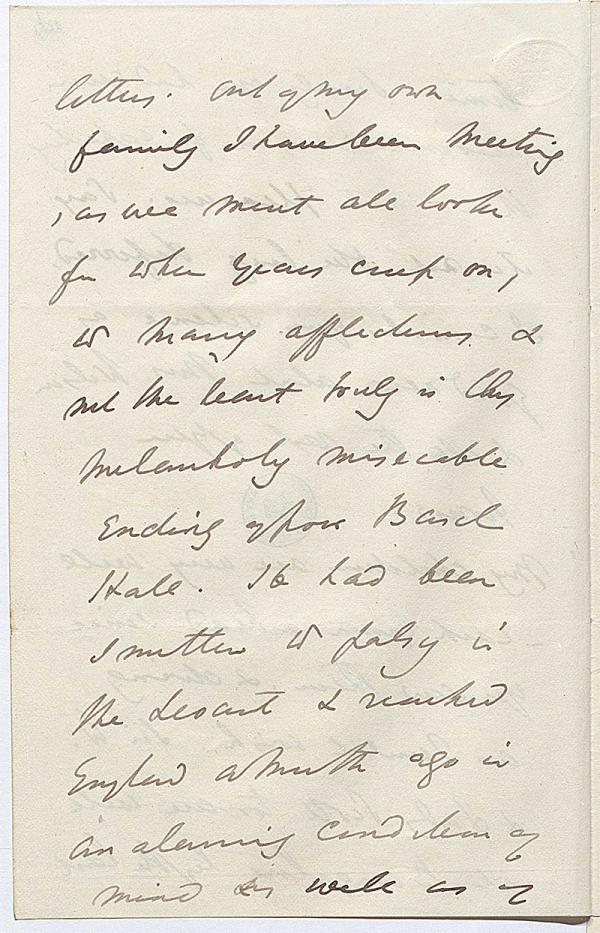 letters. Out of my own
family I have been meeting
, as we must all look
for when years creep on,
w many afflictions &
not the least truly is this
melancholy miserable
ending of poor Basil
Hall. He had been
smitten w palsy in
the Levant & reached
England a month ago in
an alarming condition of
mind as well as of